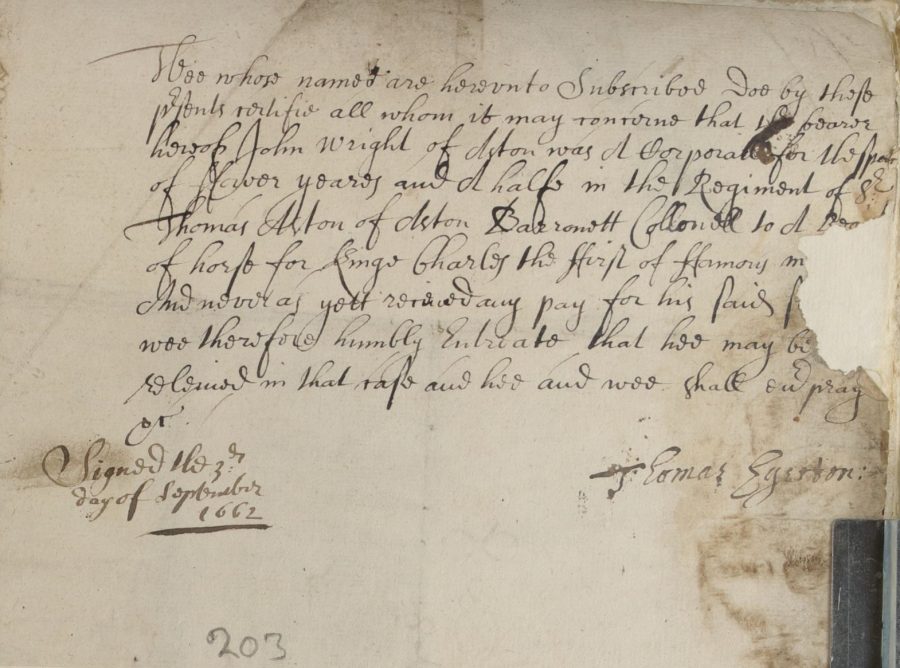 Wee whose names are herevnto Subscribed doe by these
p'sents certifie all whom it may concerne that the bearer
hereof John Wright of Aston was A Corporall for the spac
of ffower yeares and A halfe in the Regiment of Sr
Thomas Aston of Aston Barronett Collonell to A
of horse for Kinge Charles the ffirst of ffamous m
And never as yett received any pay for his said s
wee therefore humbly Entreate that hee may be
releived in that case and hee and wee shall evr pray
&c
Signed the 3th
day of September
1662
Thomas Egerton:
203